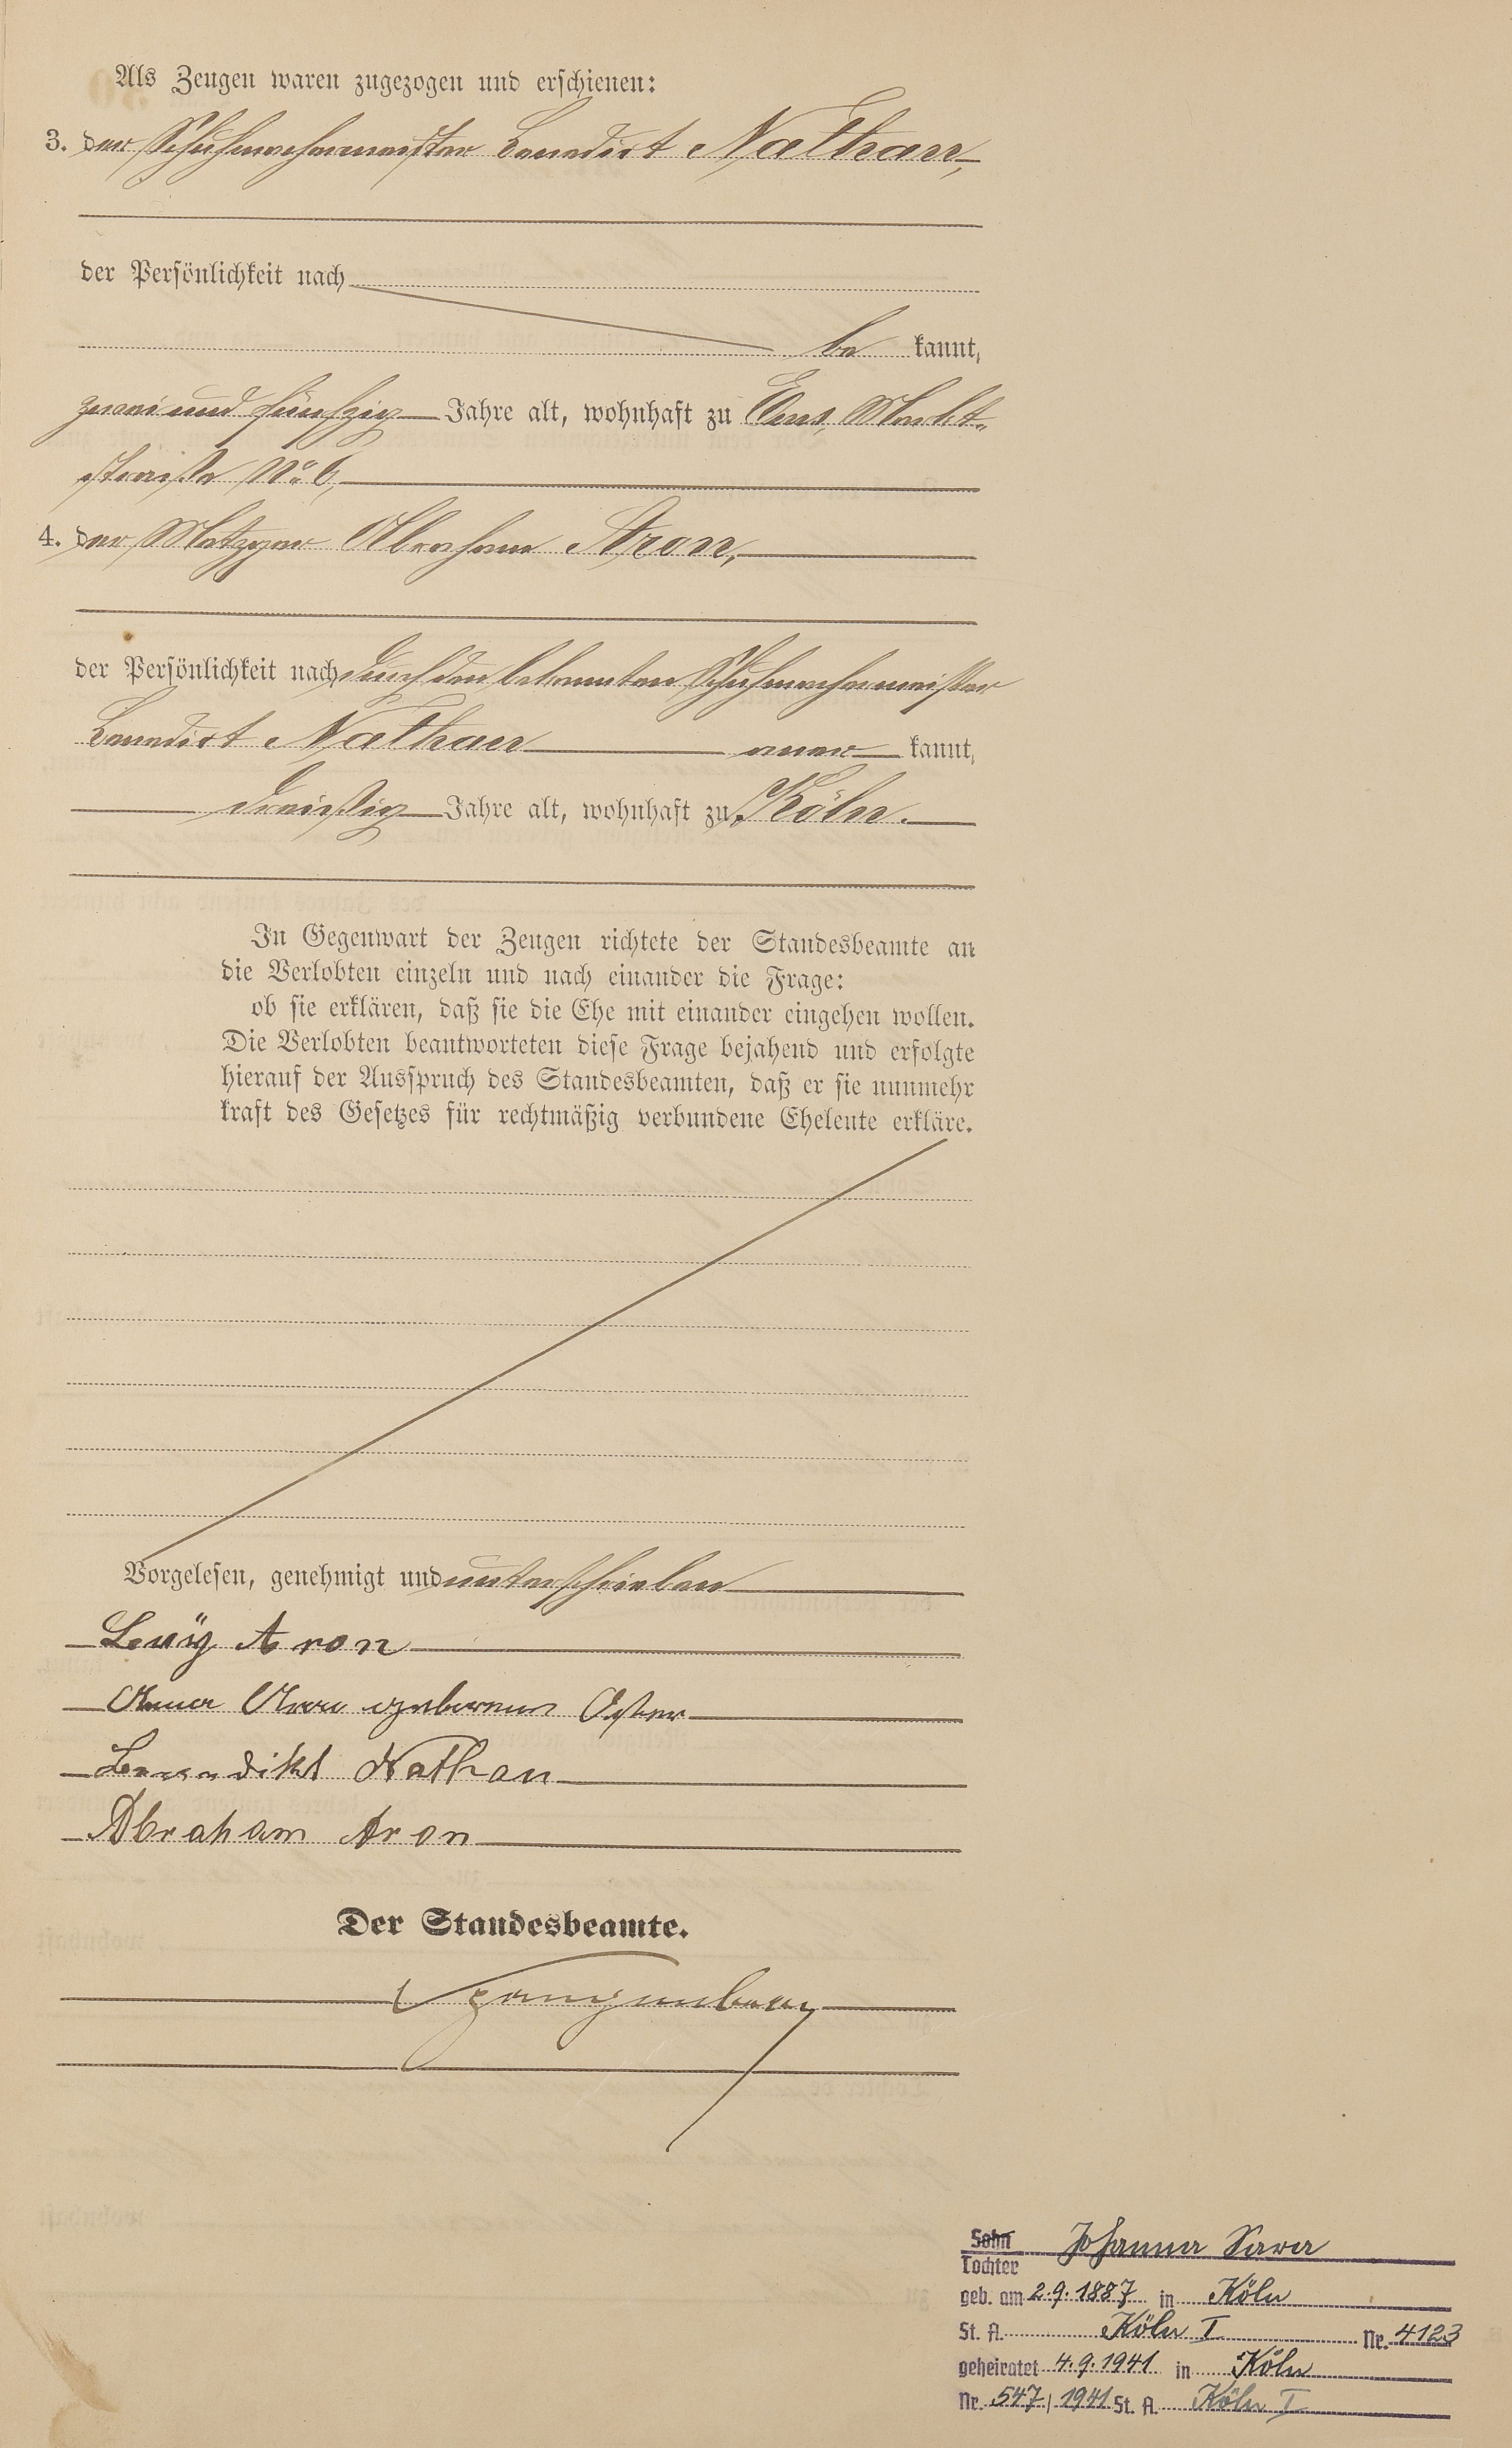 Als Zeugen waren zugezogen und erschienen:
3. der Schuhmachermeister Benedict Nathan,
der Persönlichkeit nach
be kannt,
zwei und fünfzig Jahre alt, wohnhaft zu Ems, Markt-
straße No 6,
4. der Metzger Abraham Aron,
der Persönlichkeit nach durch den bekannten Schuhmachermeister
Benedict Nathan aner kannt,
dreißig Jahre alt, wohnhaft zu Köln.
In Gegenwart der Zeugen richtete der Standesbeamte an
die Verlobten einzeln und nach einander die Frage:
ob sie erklären, daß sie die Ehe mit einander eingehen wollen.
Die Verlobten beantworteten diese Frage bejahend und erfolgte
hierauf der Ausspruch des Standesbeamten, daß er sie nunmehr
kraft des Gesetzes für rechtmäßig verbundene Eheleute erkläre.
Vorgelesen, genehmigt und unterschrieben
Levÿ Aron
Anna Aron geborene
Benedikt Nathan
Abraham Aron
Der Standesbeamte.
Sohn Johanna Sara
Tochter
geb. am 2.9.1887 in Köln
St. A. Köln I Nr. 4123
geheiratet 4.9.1941 in Köln
Nr. 547 / 1941 St. A. Köln I